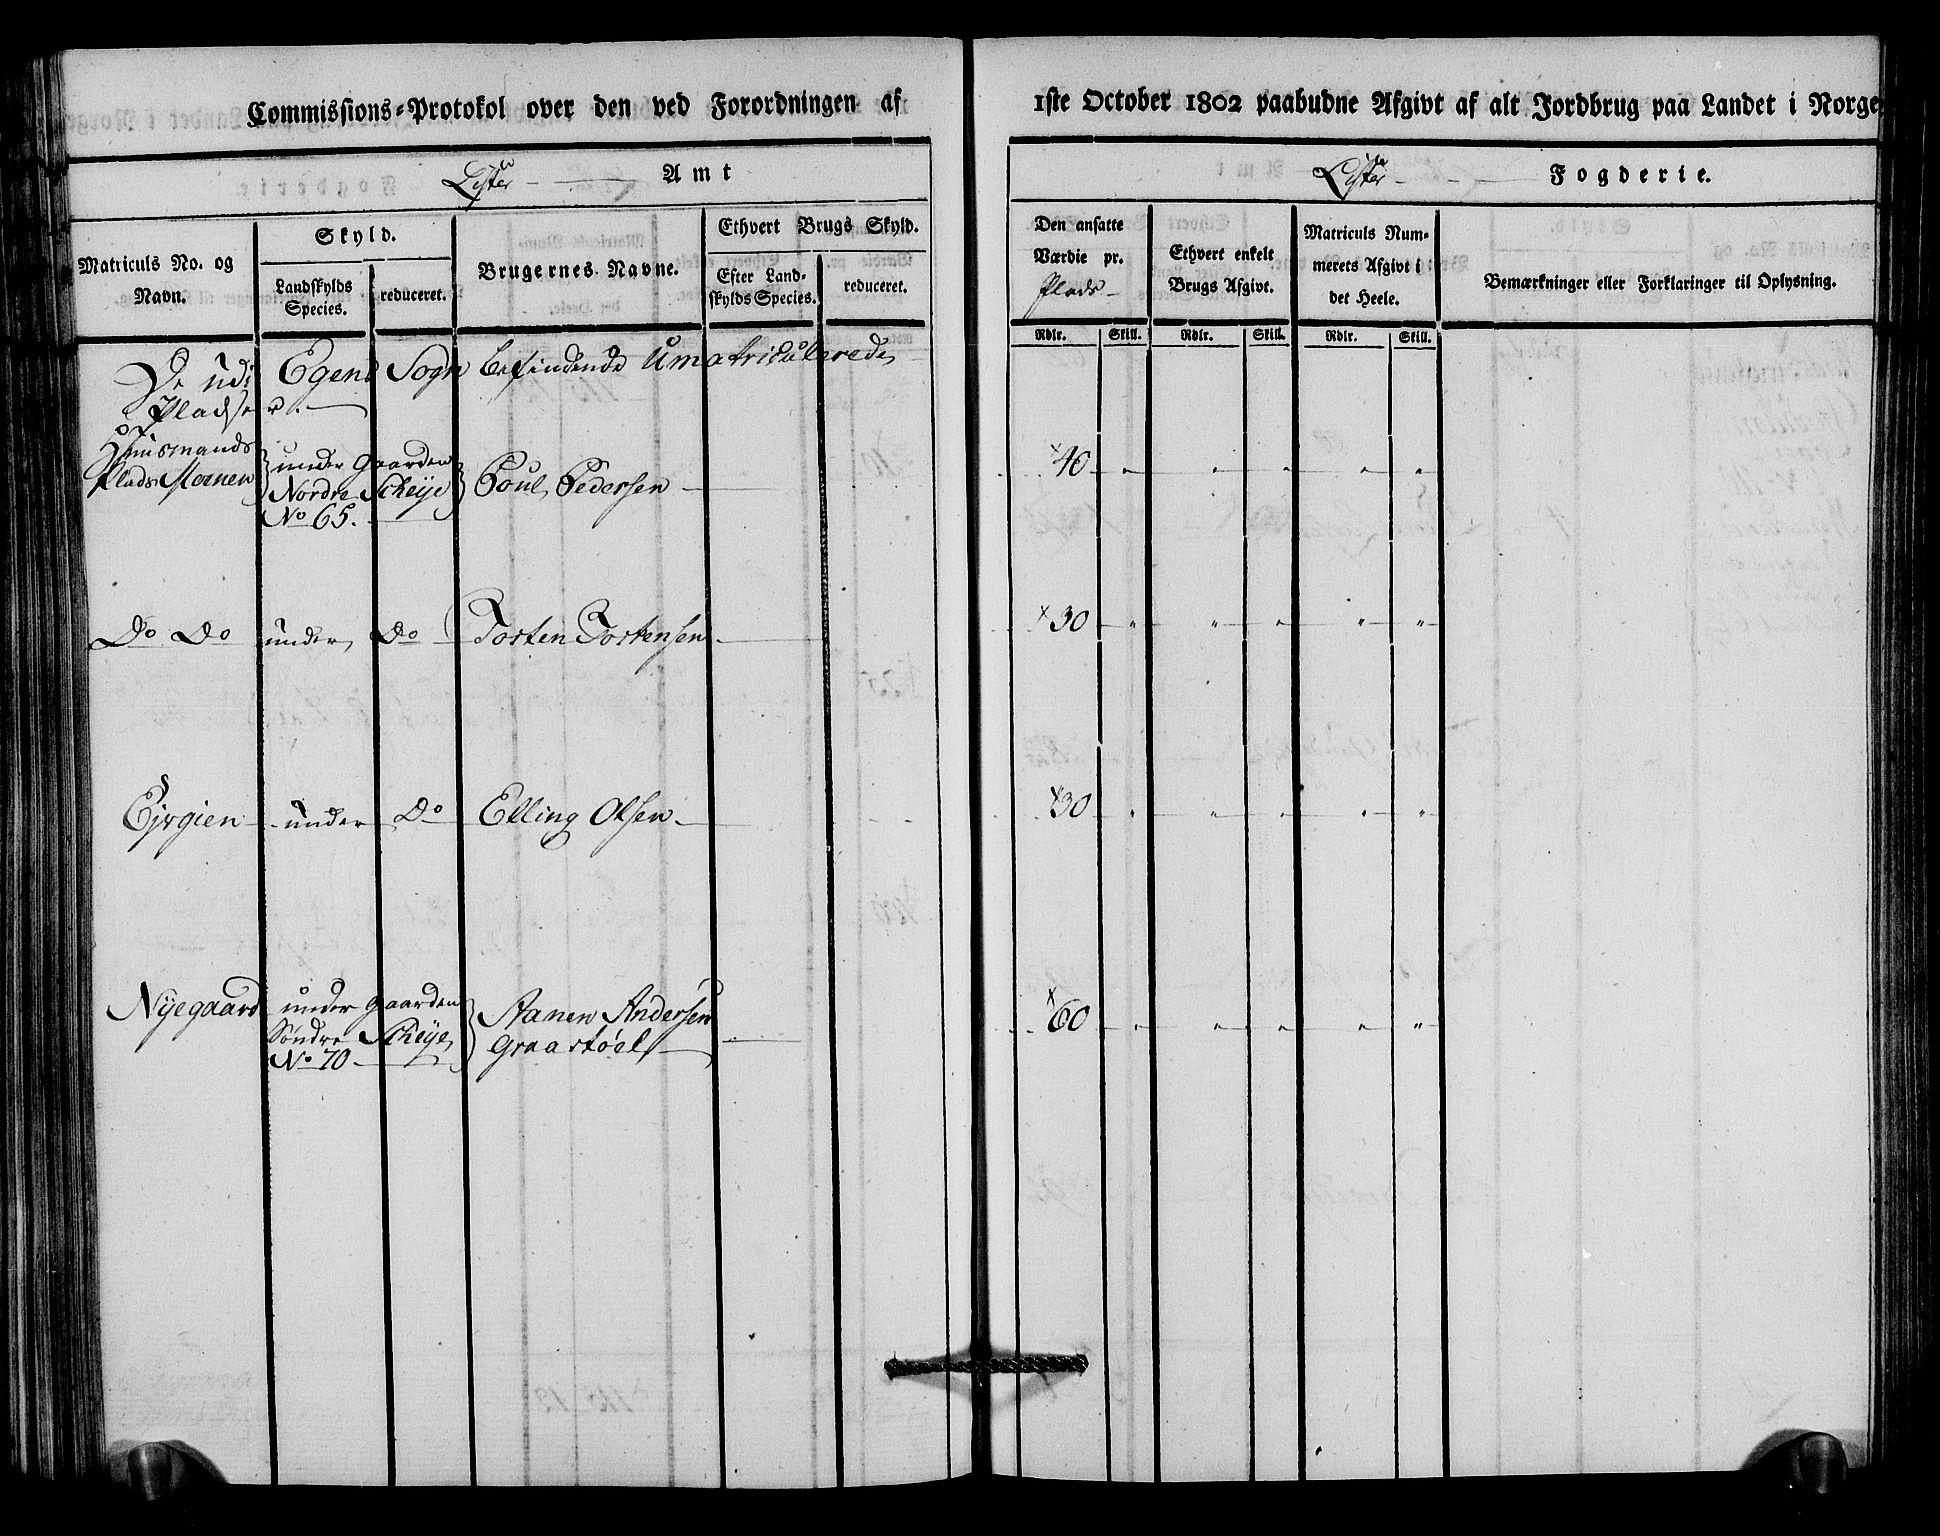 Commissions-Protokol over den ved Forordningen af
Lister Amt
Matriculs No. og Navn.
Skyld.
Landskylds Species.
reduceret.
Brugernes Navne.
Ethvert Brugs Skyld.
Efter Land-
skylds Species.
reduceret.
De udi Egens Sogn befindende Umatriculerede
Pladser.
Huusmands
Plads Moenen under Gaarden Nordre Scheije No 65. Poul Pedersen
Do Do under Do Torsten Torstensen
under Do Elling Olsen
Nyegaard under Gaarden Søndre Scheije No 70 Aanen Andersen
Graastøel
1ste October 1802 paabudne Afgivt af alt Jordbrug paa Landet i Norge
Lister Fogderie.
Den ansatte
Værdie pr.
Plads
Ethvert enkelt
Brugs Afgivt.
Matriculs Num-
merets Afgivt i
det Heele.
Bemærkninger eller Forklaringer til Oplysning.
Rdlr. Skill. Rdlr. Skill. Rdlr. Skill.
40 " " " " "
30 " " " " "
30 " " " " "
60 " " " " "